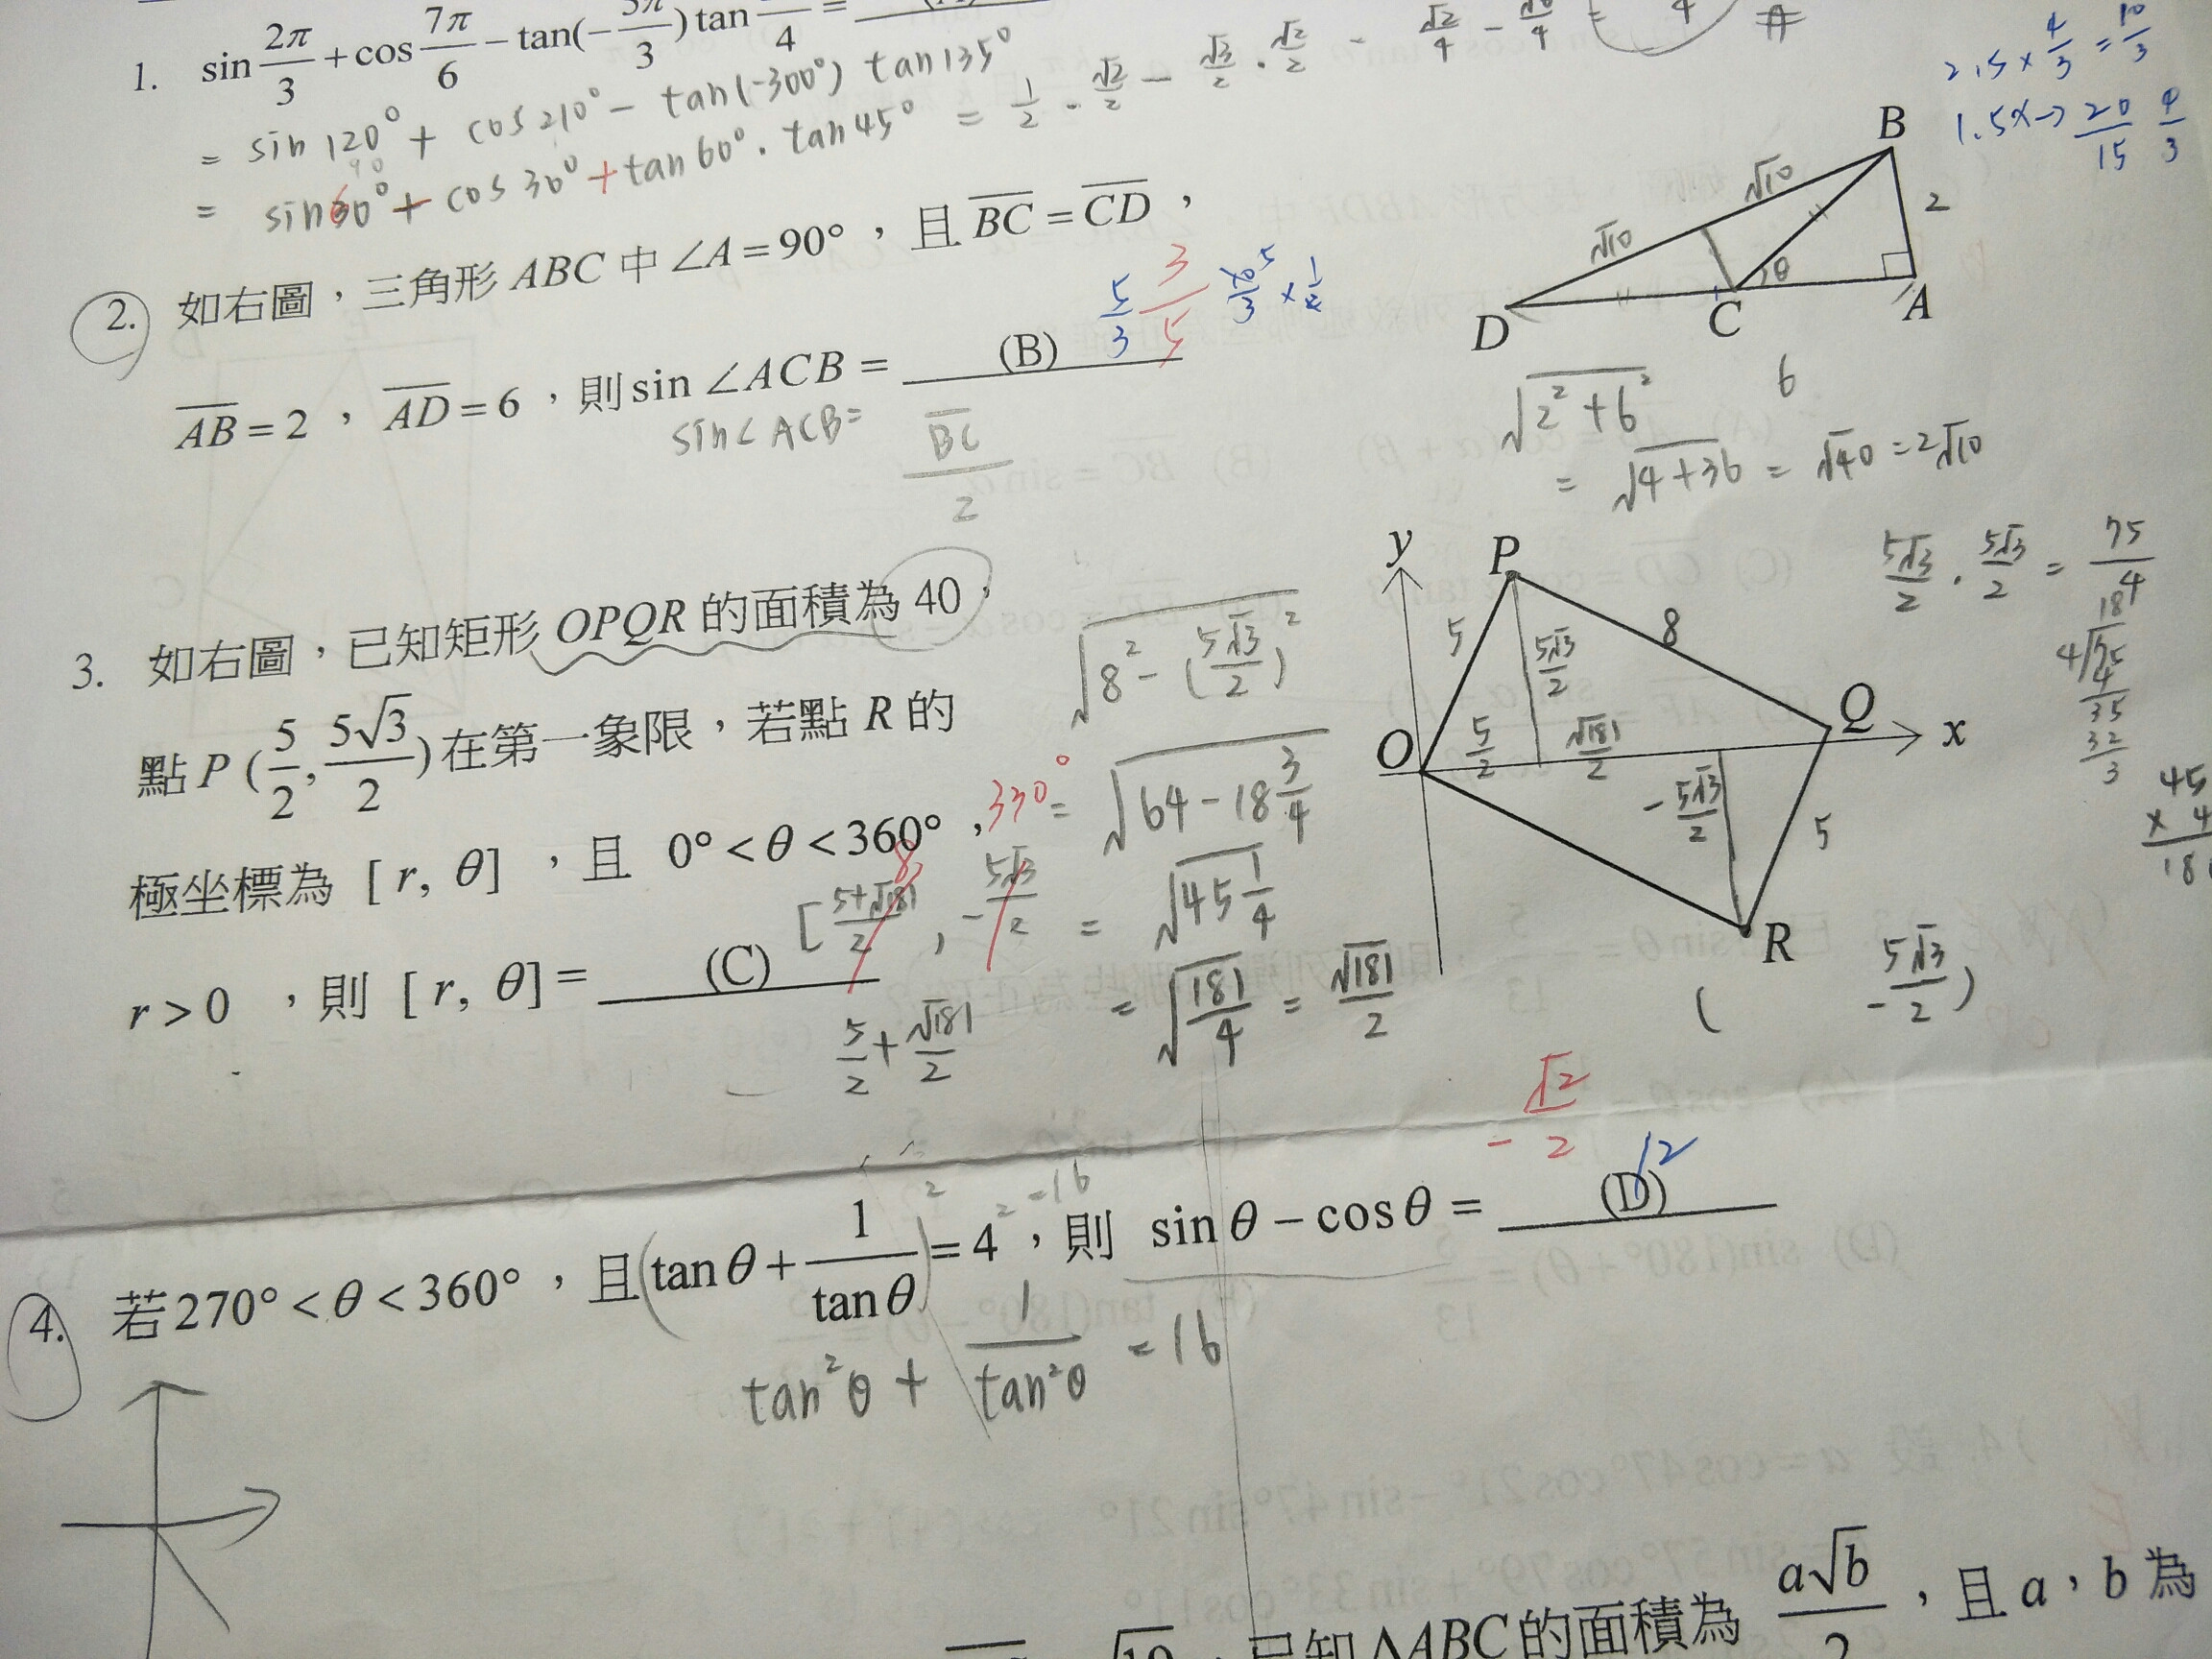 1. sin 2π/3 + cos 7π/6 − tan(− 5π/3) tan /4 =
= sin 120° + cos 210° − tan(-300°) tan 135°
= sin 60° − cos 30° + tan 60° · tan 45° = 1/2 - √2/2 − √3/2 · √2/2 - √2/4 − √6/4 = 4 #
2.5 × 4/3 = 10/3
1.5x→ 20/15 4/3
2. 如右圖，三角形 ABC 中 ∠A = 90°，且 BC = CD，
AB = 2，AD = 6，則 sin ∠ACB = (B)
5/3 3/5 10/3 5 × 1/2
sin∠ACB = BC/2
B
√10
√10
2
θ
D C A
6
√2²+6²
= √4+36 = √40 = 2√10
3. 如右圖，已知矩形 OPQR 的面積為 40，
點 P (5/2, 5√3/2) 在第一象限，若點 R 的
極坐標為 [r, θ]，且 0° < θ < 360°，330°
[ 5+√181/2 , -5√3/2
8
r > 0，則 [r, θ] = (C)
5/2 + √181/2
√8² − (5√3/2)²
= √64 − 18 3/4
= √45 1/4
= √181/4 = √181/2
y P
5 5√3/2 8
O 5/2 √181/2 Q x
-5√3/2 5
R
( -5√3/2 )
5√3/2 · 5√3/2 = 75/4
18
4√75
4
35
32
3
45
× 4
-√2/2
12
4. 若 270° < θ < 360°，且 (tan θ + 1/tan θ)² = 4² = 16，則 sin θ − cos θ = (D)
tan²θ + 1/tan²θ = 16
√10，已知 ΔABC 的面積為 a√b/2，且 a，b 為